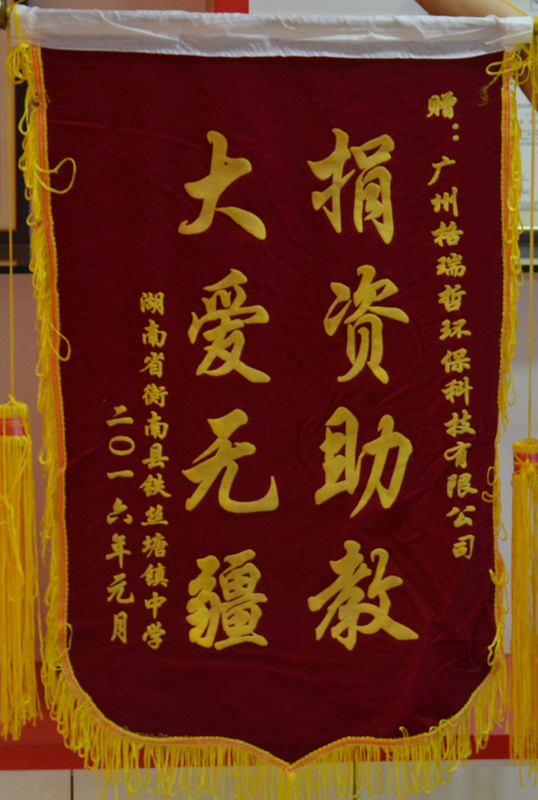 赠：广州格瑞哲环保科技有限公司
捐资助教
大爱无疆
湖南省衡南县铁丝塘镇中学
二〇一六年元月